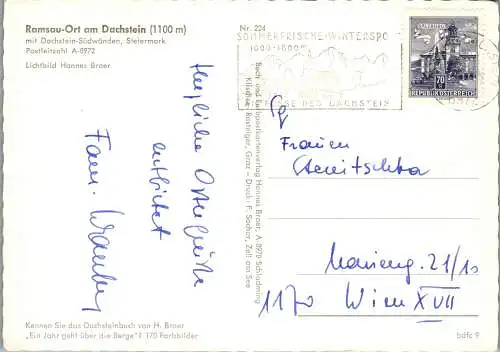 Ramsau-Ort am Dachstein (1100 m)
mit Dachstein-Südwänden, Steiermark
Postleitzahl A-8972
Lichtbild Hannes Broer
Herzliche Ostergrüße
entbietet
Fam.
Kennen Sie das Dachsteinbuch von H. Broer
„Ein Jahr geht über die Berge"? 170 Farbbilder
Buch- und Kunstpostkartenverlag Hannes Broer, A 8970 Schladming
Klischee: Rostelger, Graz – Druck: F. Sochor, Zell am See
Nr. 224
SOMMERFRISCHE-WINTERSPO
1000-1800m
FUSSE DES DACHSTEIN
70
REPUBLIK ÖSTERREICH
Frauen
21/10
1170 Wien XVII
bdfc 9